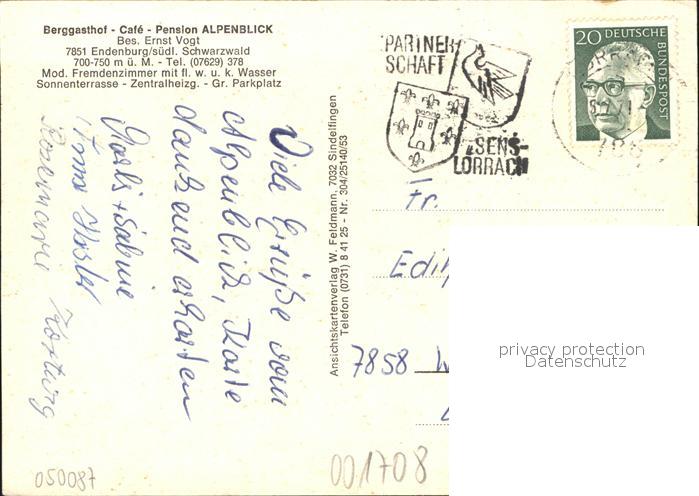 Berggasthof - Café - Pension ALPENBLICK
Bes. Ernst Vogt
7851 Endenburg/südl. Schwarzwald
700-750 m ü. M. - Tel. (07629) 378
Mod. Fremdenzimmer mit fl. w. u. k. Wasser
Sonnenterrasse - Zentralheizg. - Gr. Parkplatz
PARTNER
SCHAFT
SENS-
LÖRRACH
20 DEUTSCHE
BUNDESPOST
Viele Grüße vom
Alpenblick, Karte
dankend erhalten
Rosemarie
Ansichtskartenverlag W. Feldmann, 7032 Sindelfingen
Telefon (0731) 8 41 25 - Nr. 304/25140/53
Fr.
7858 W
privacy protection
Datenschutz
050087
001708